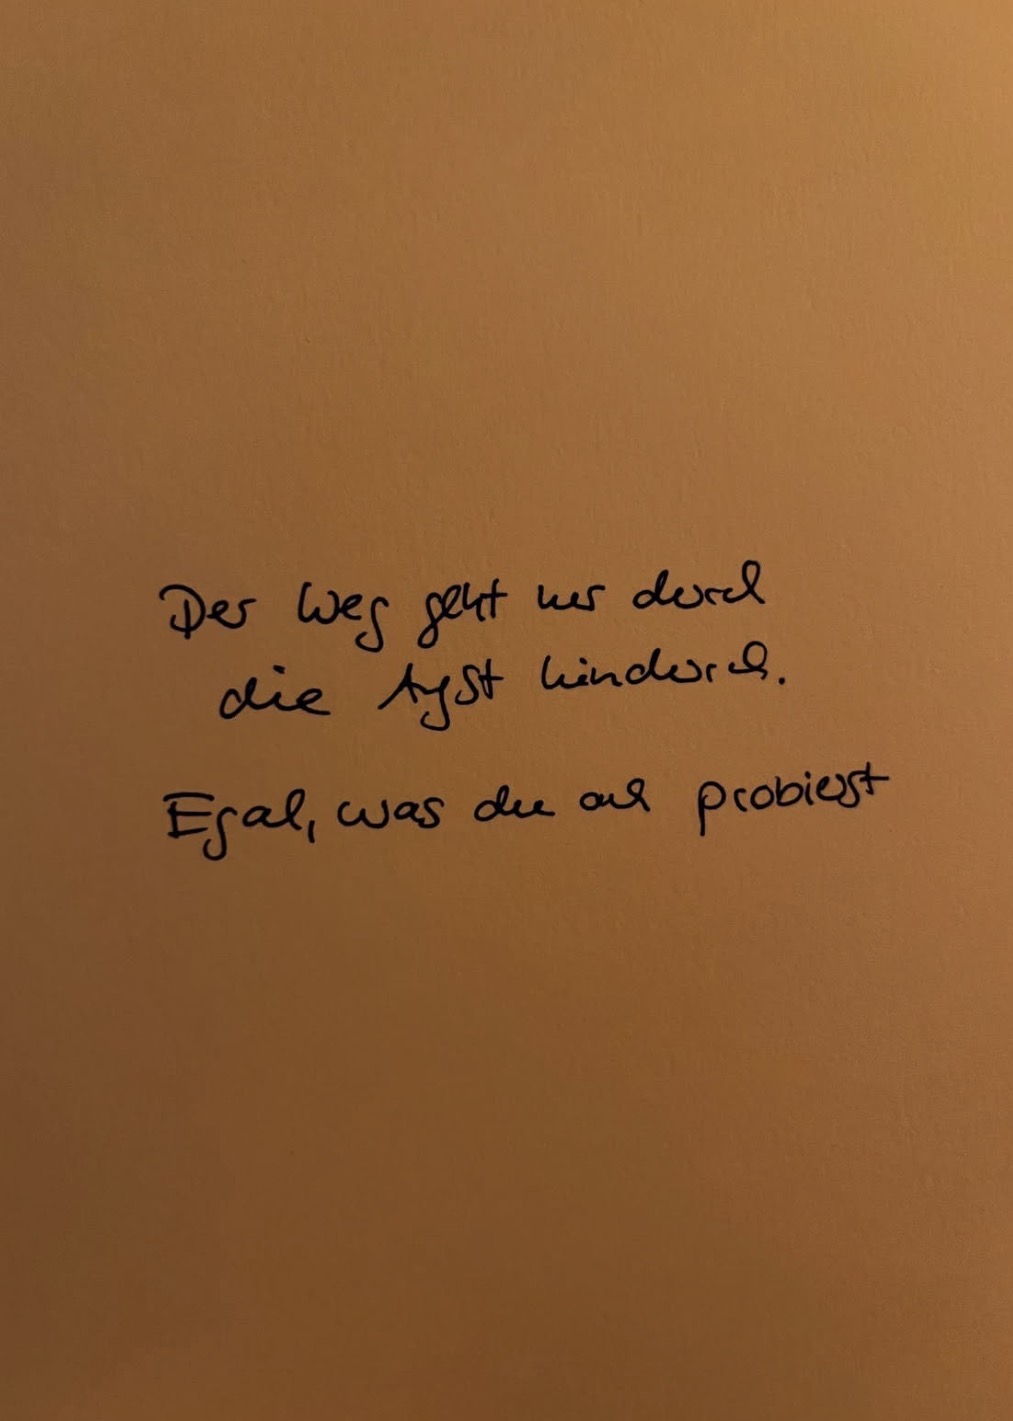 Der Weg geht nur durch
die Angst hindurch.
Egal, was du auch probierst